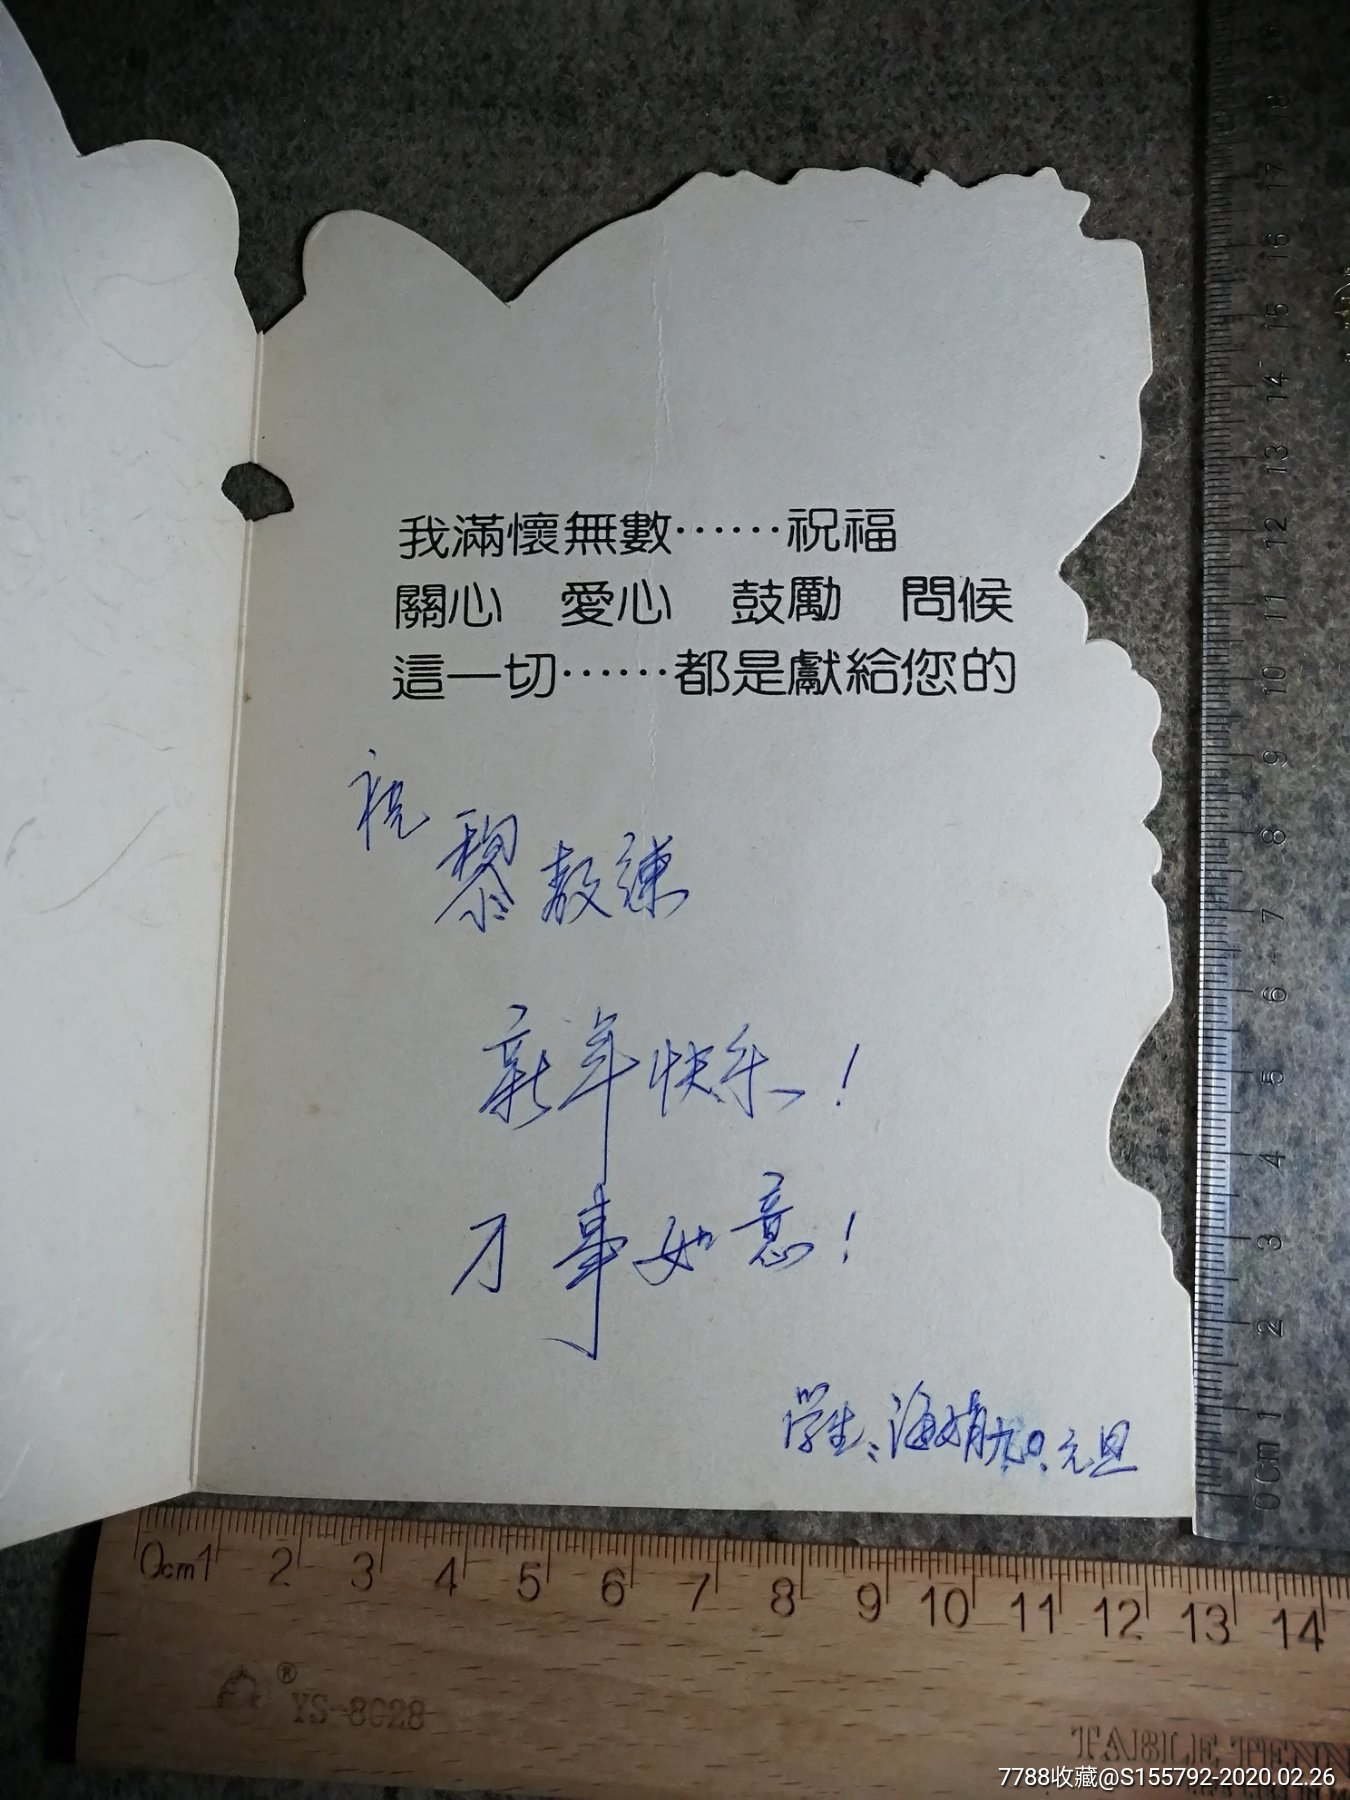 我滿懷無數⋯⋯祝福
關心 愛心 鼓勵 問候
這一切⋯⋯都是獻給您的
祝
黎教練
新年快乐!
万事如意!
学生:海娟九〇.元旦
0cm 1 2 3 4 5 6 7 8 9 10 11 12 13 14 15 16 17 18
0cm 1 2 3 4 5 6 7 8 9 10 11 12 13 14
® YS-8028
TABLE TENN
7788收藏@S155792-2020.02.26